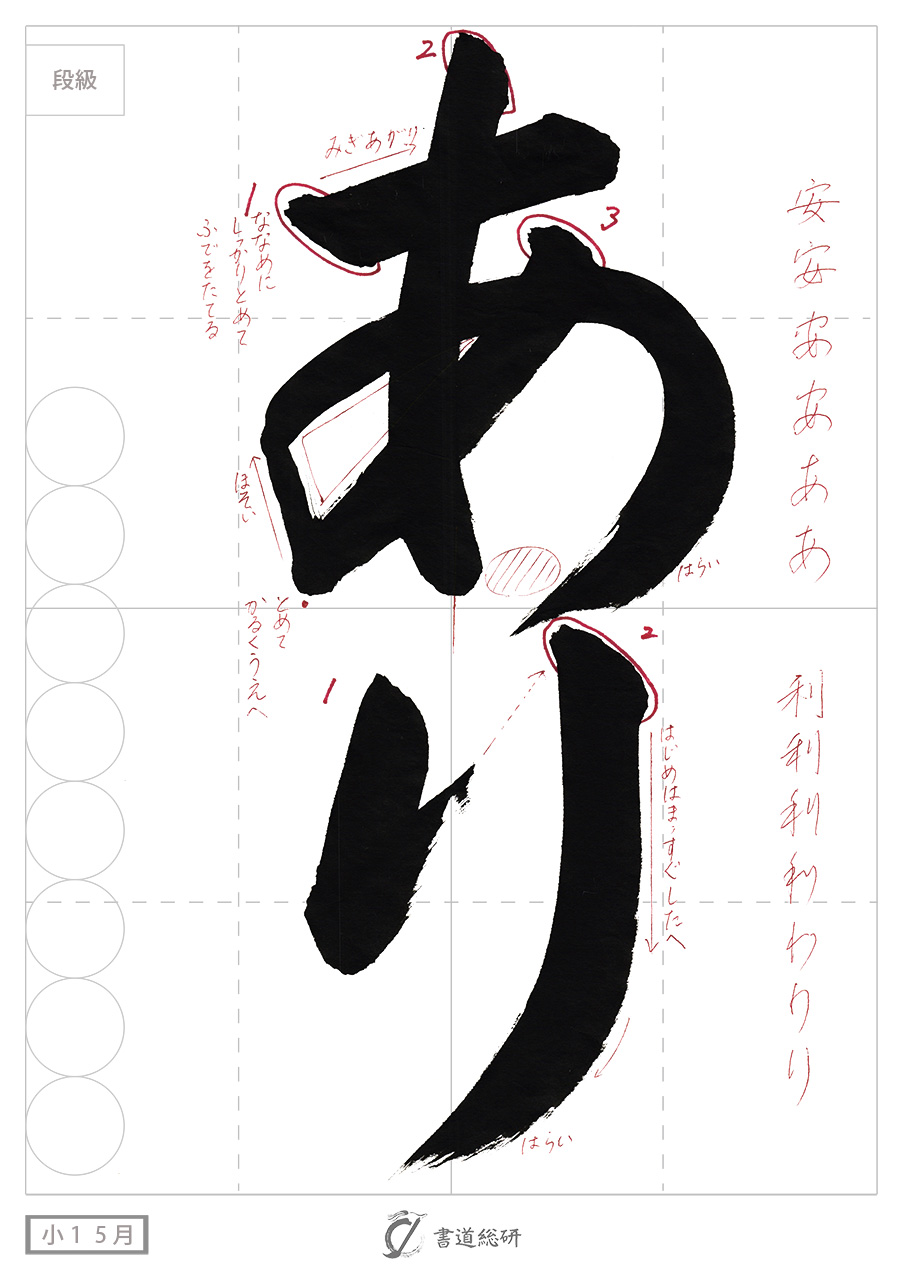 段級
安安安安ああ
利利利利わりり
あり
2
みぎあがり
1
ななめに
しっかりとめて
ふでをたてる
3
ほそい
はらい
とめて
かるくうえへ
1
2
はじめはまっすぐしたへ
はらい
小1 5月
書道総研